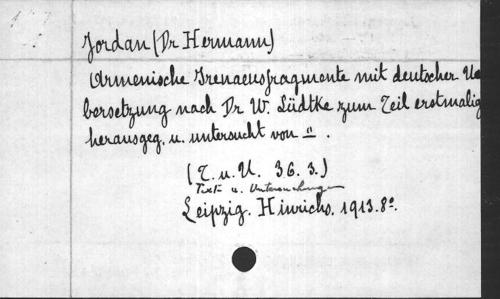 Jordan (Dr Hermann)
Armenische Irenaeusfragmente mit deutscher Ue
bersetzung nach Dr W. Lüdtke zum Teil erstmalig
herausgeg. u. untersucht von =" .
(T. u. U. 36. 3.)
Texte u. Untersuchungen
Leipzig. Hinrichs. 1913. 8º.